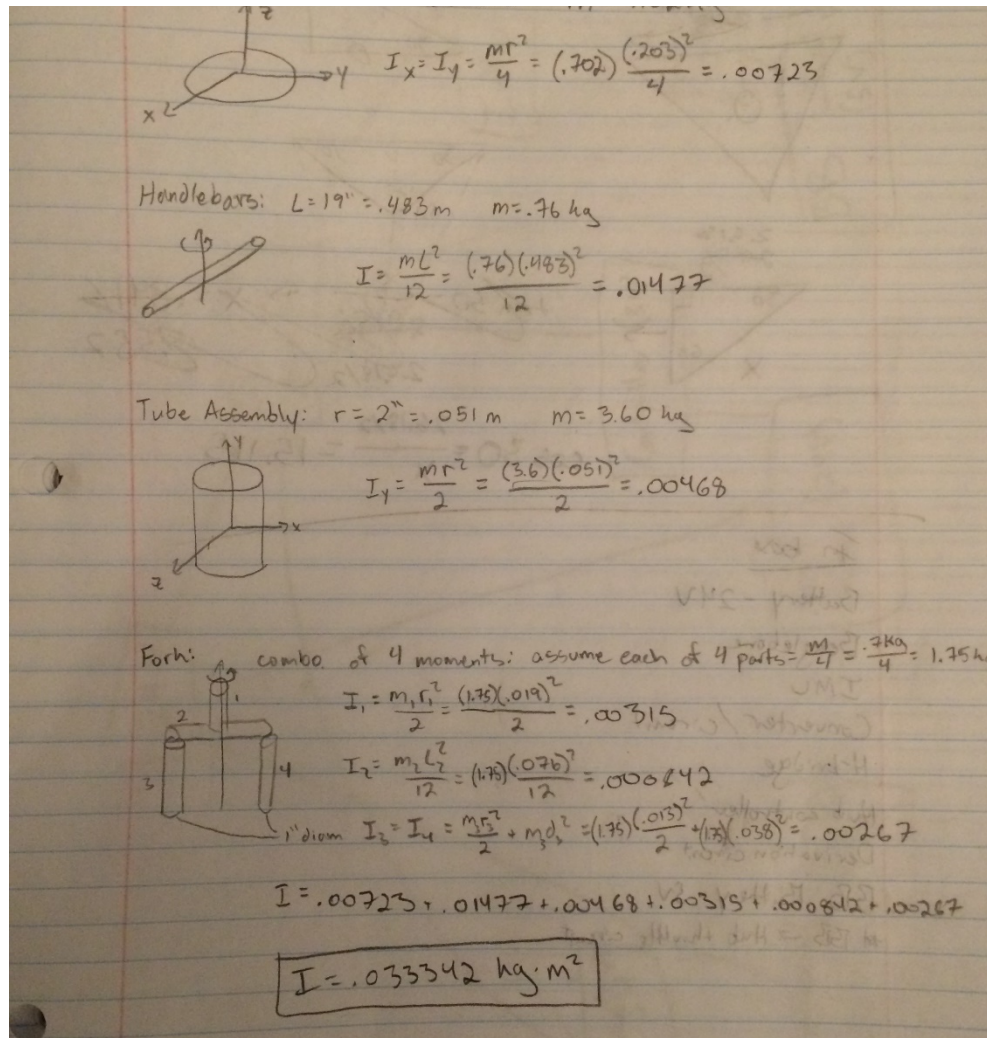 z
y
x
Ix = Iy = mr²/4 = (.702) (.203)²/4 = .00723
Handlebars: L = 19" = .483 m m = .76 kg
I = mL²/12 = (.76)(.483)²/12 = .01477
Tube Assembly: r = 2" = .051 m m = 3.60 kg
y
x
z
Iy = mr²/2 = (3.6)(.051)²/2 = .00468
Fork: combo of 4 moments: assume each of 4 parts = m/4 = .7kg/4 = 1.75 k
1
2
3
4
1" diam
I₁ = m₁r₁²/2 = (1.75)(.019)²/2 = .00315
I₂ = m₂L₂²/12 = (1.75)(.076)²/12 = .000842
I₃ = I₄ = m₃r₃²/2 + m₃d₃² = (1.75)(.013)²/2 + (1.75)(.038)² = .00267
I = .00723 + .01477 + .00468 + .00315 + .000842 + .00267
I = .033342 kg·m²